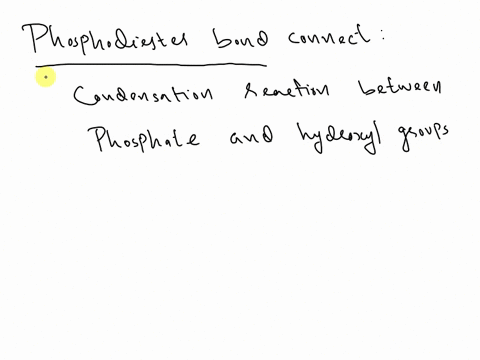 Phosphodiester bond connect :
Condensation reaction between
Phosphate and hydroxyl groups